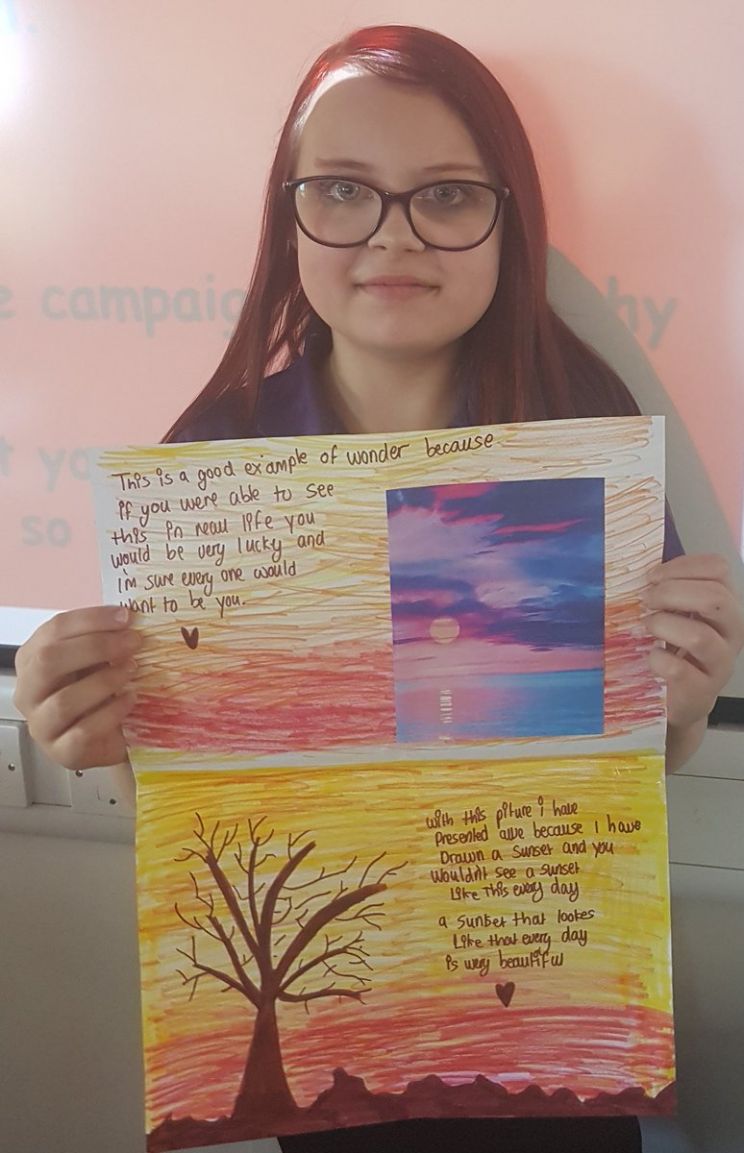 campaig
hy
so
This is a good example of wonder because
if you were able to see
this in reall life you
would be very lucky and
i'm sure every one would
want to be you.
with this piture i have
Presented awe because i have
Drawn a sunset and you
wouldn't see a sunset
Like This every day
a sunset that lookes
Like that every day
is very beautiful